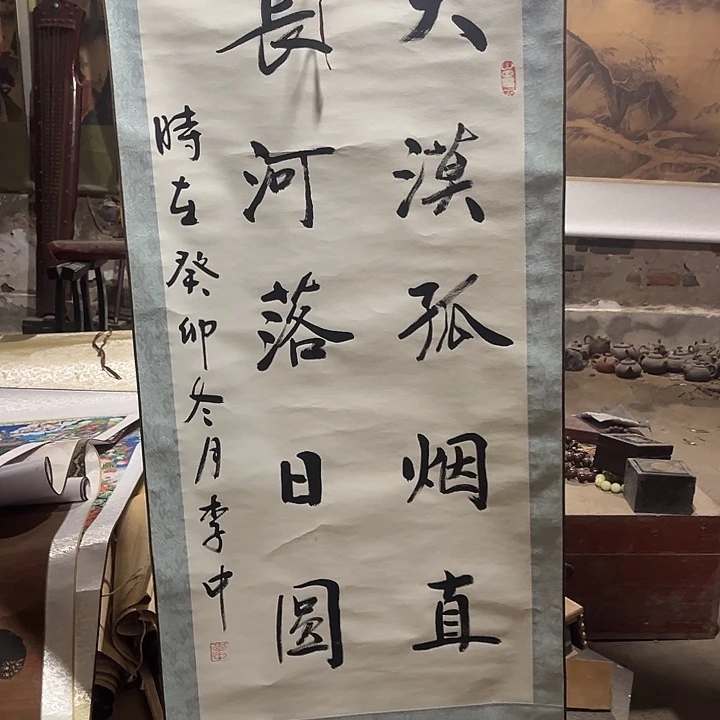 大漠孤烟直
長河落日圆
時在癸卯冬月李中